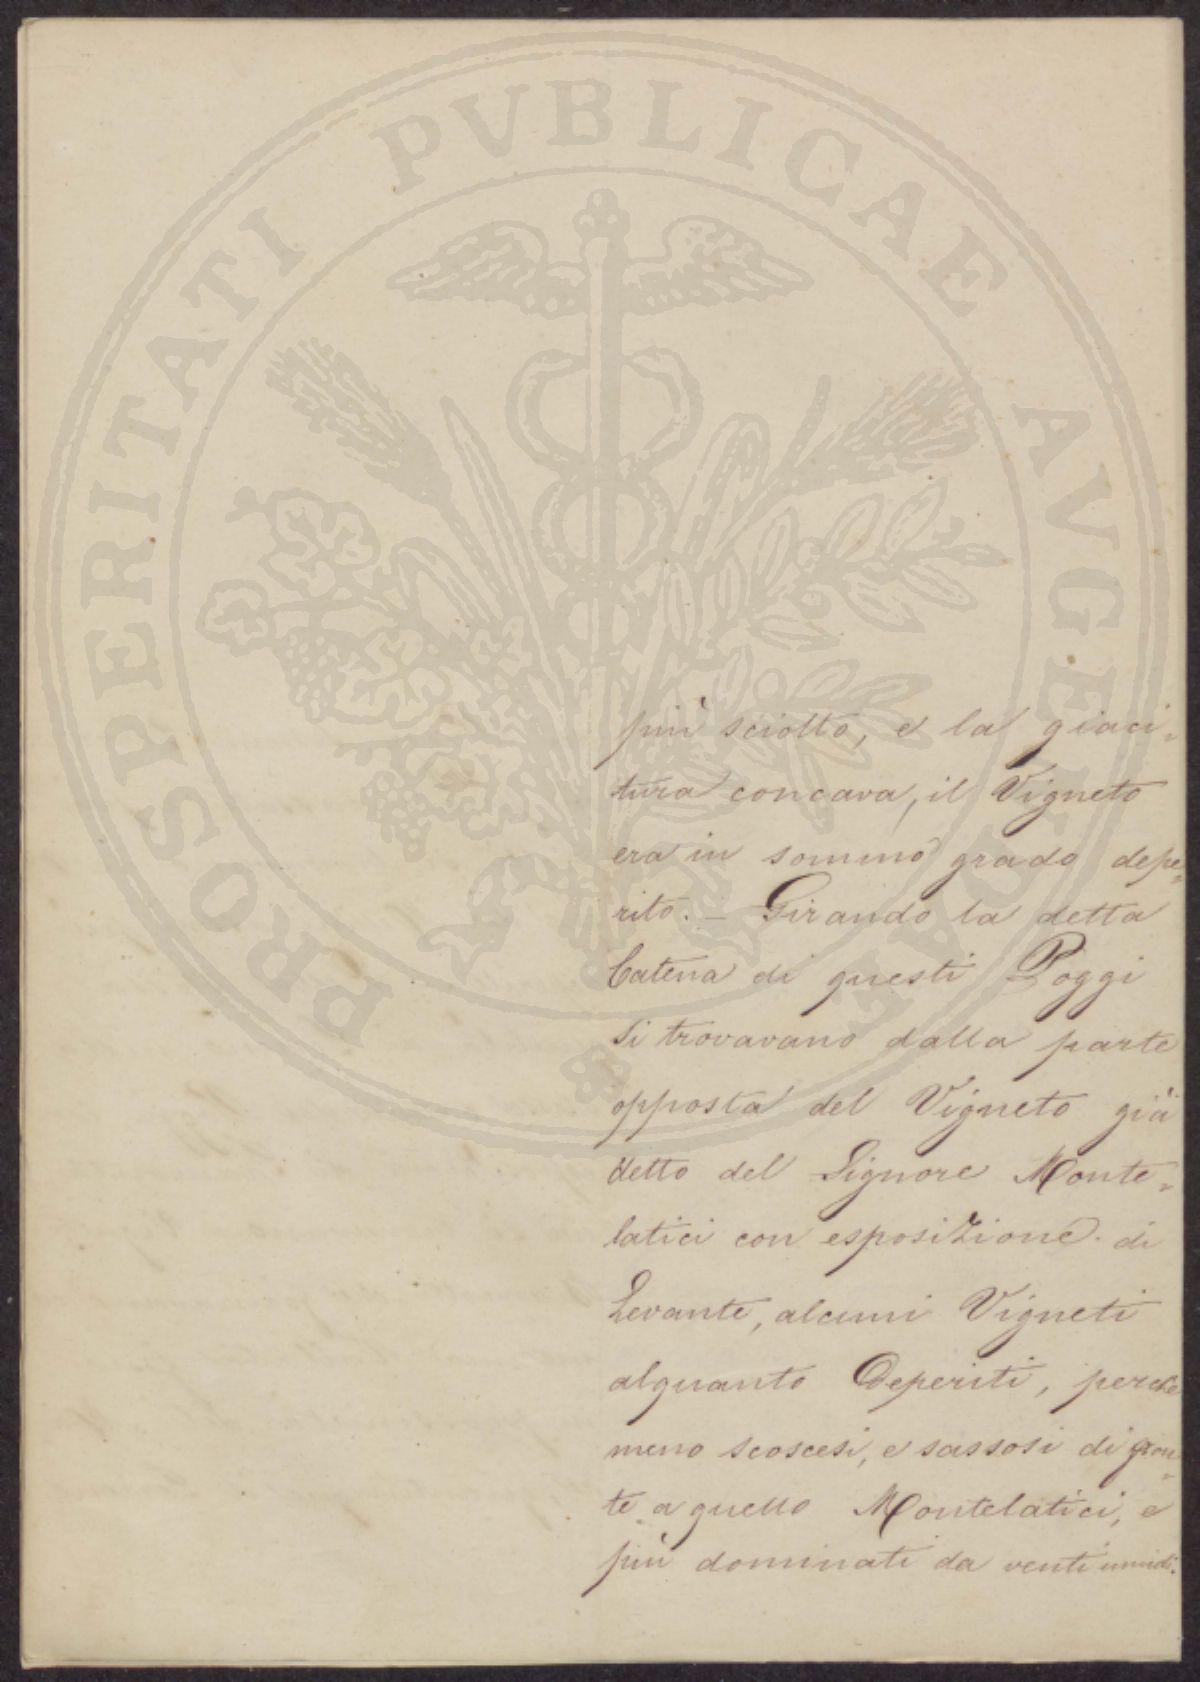 PROSPERITATI PVBLICAE AVGENDAE
più sciolto, e la giaci=
tura concava, il Vigneto
era in sommo grado depe=
rito. _ Girando la detta
Catena di questi Poggi
si trovavano dalla parte
opposta del Vigneto già
detto del Signore Monte=
latici con esposizione di
Levante, alcuni Vigneti
alquanto Deperiti, perche
meno scoscesi, e sassosi di fron=
te a quello Montelatici, e
più dominati da venti umidi.